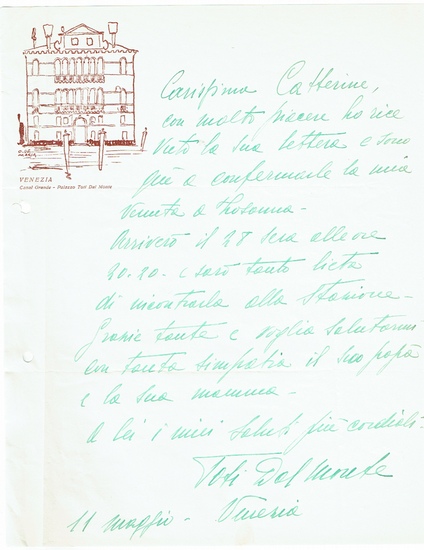 VENEZIA
Canal Grande - Palazzo Toti Dal Monte
Carissima Catterine,
con molto piacere ho rice
vuto la sua lettera e sono
qui a confermarle la mia
venuta a Losanna -
Arriverò il 28 sera alle ore
20.20. e sarò tanto lieta
di incontrarla alla Stazione -
Grazie tante e voglia salutarmi
con tanta simpatia il suo papà
e la sua mamma -
a lei i miei saluti più cordiali -
Toti Dal Monte
11 maggio - Venezia